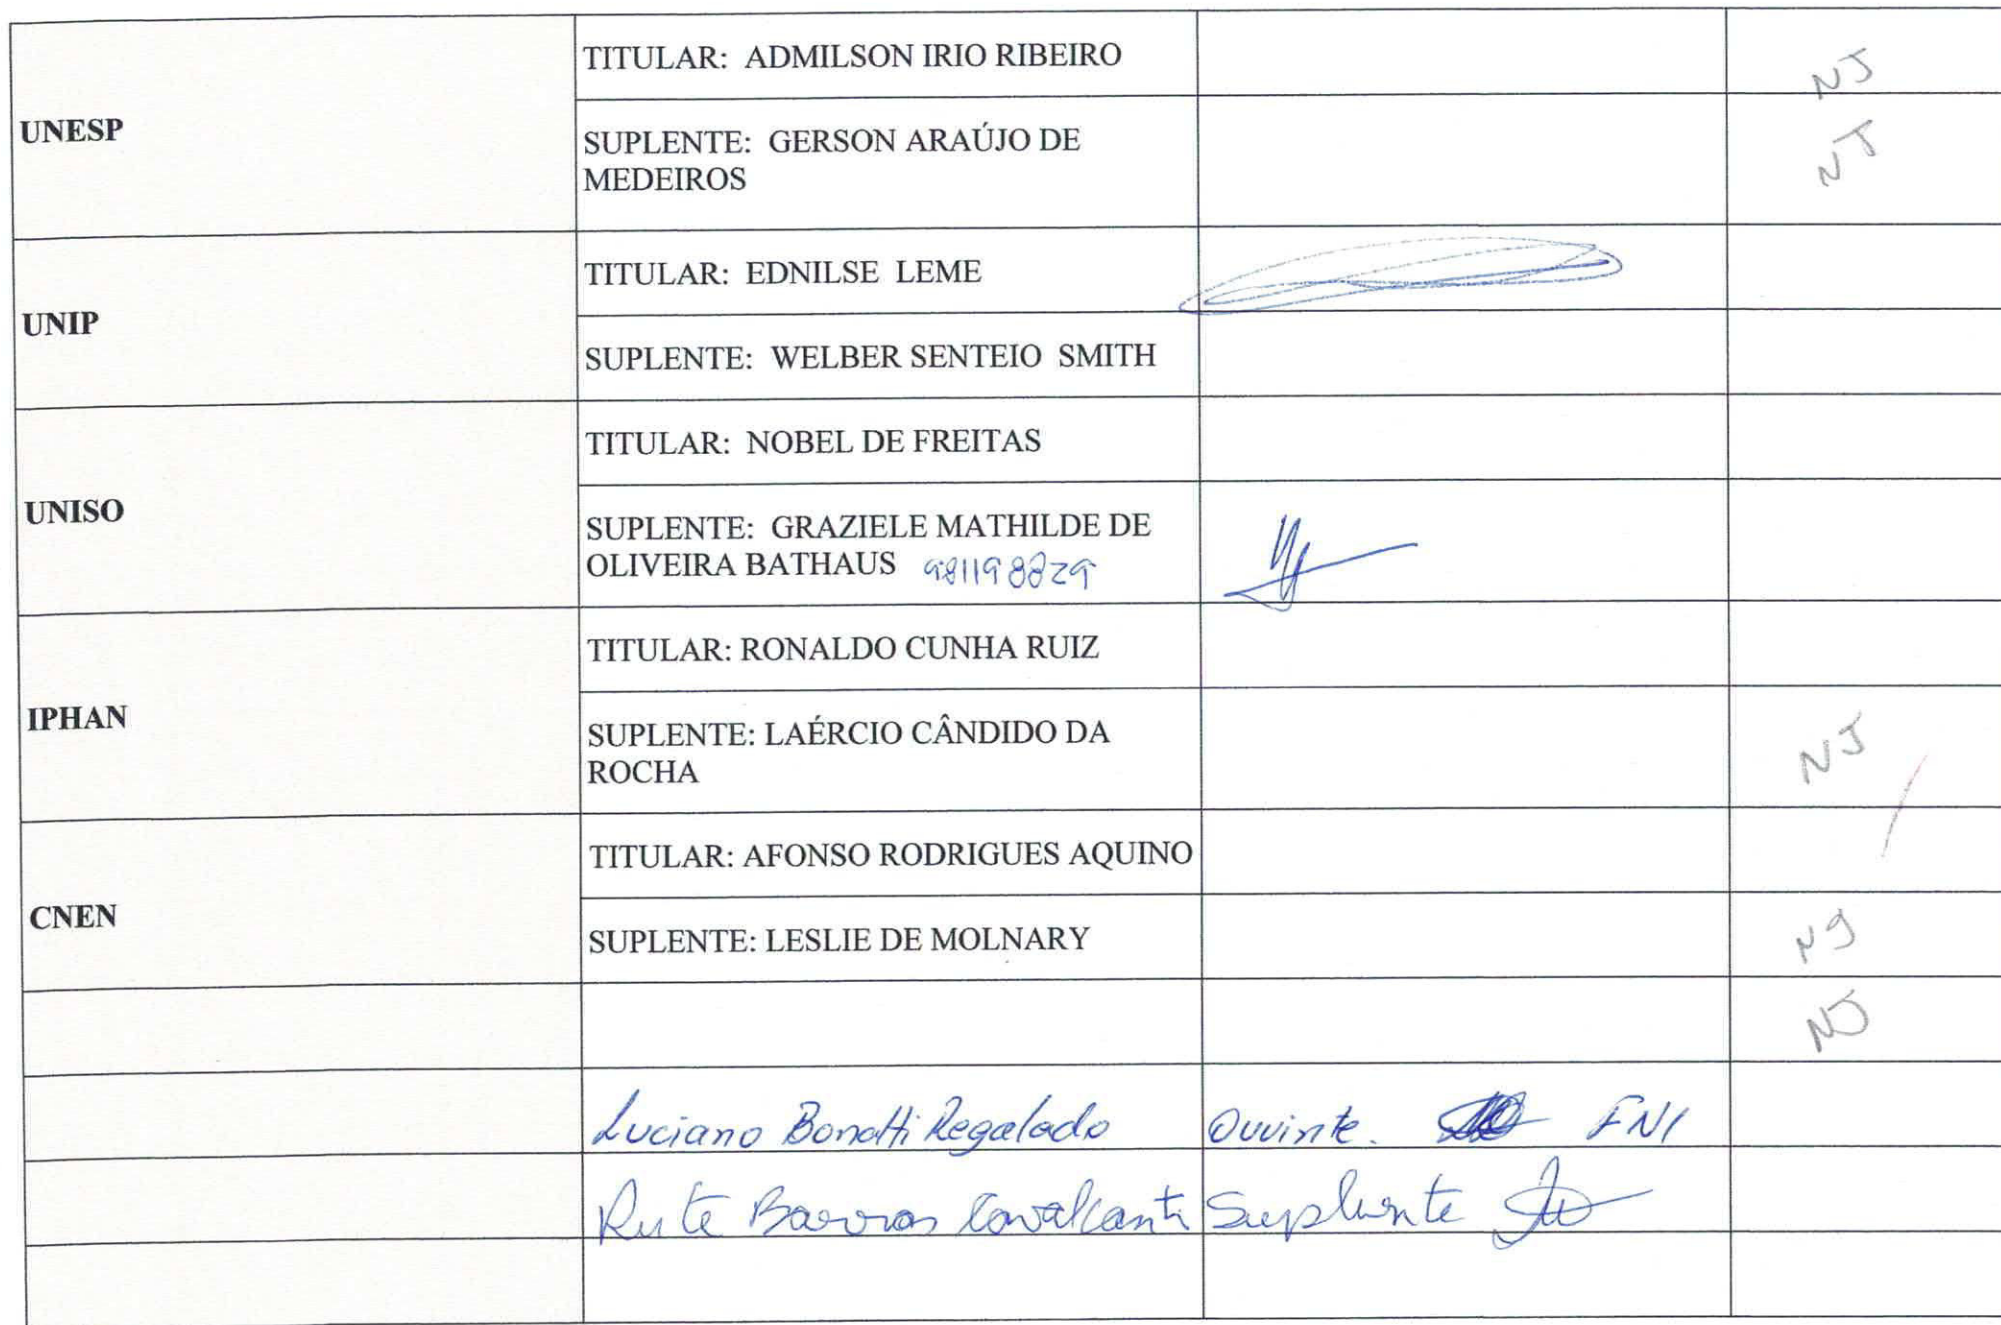 UNESP
TITULAR: ADMILSON IRIO RIBEIRO
NJ
SUPLENTE: GERSON ARAÚJO DE
MEDEIROS
NJ
UNIP
TITULAR: EDNILSE LEME
SUPLENTE: WELBER SENTEIO SMITH
UNISO
TITULAR: NOBEL DE FREITAS
SUPLENTE: GRAZIELE MATHILDE DE
OLIVEIRA BATHAUS 981198829
IPHAN
TITULAR: RONALDO CUNHA RUIZ
SUPLENTE: LAÉRCIO CÂNDIDO DA
ROCHA
NJ
CNEN
TITULAR: AFONSO RODRIGUES AQUINO
SUPLENTE: LESLIE DE MOLNARY
NJ
NJ
Luciano Bonatti Regalado Ouvinte.
Rute Barros Cavalcanti Suplente